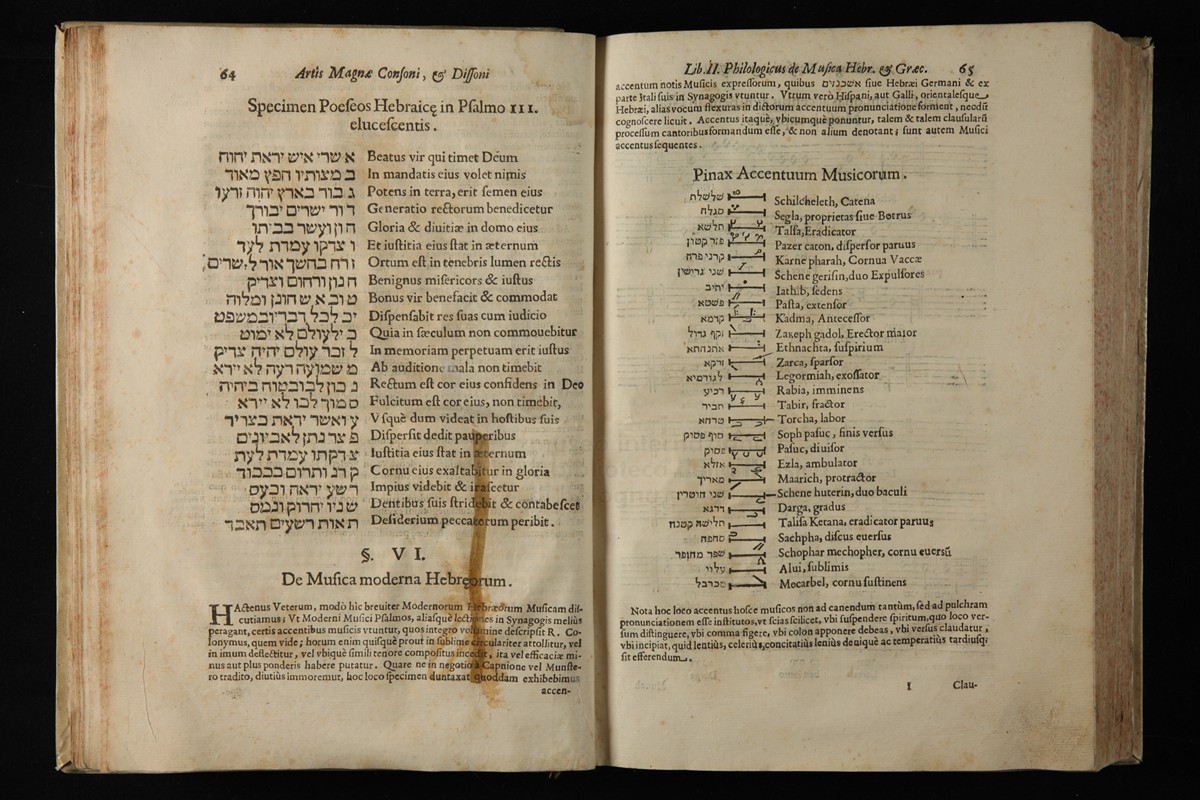 64 Artis Magnæ Consoni, & Dissoni
Specimen Poeseos Hebraicę in Psalmo III.
elucescentis.
א שרי איש יראת יהוה Beatus vir qui timet Deum
ב מצותיו חפץ מאוד In mandatis eius volet nimis
ג בור בארץ יהוה זרעו Potens in terra, erit semen eius
ד ור ישרים יבורך Generatio rectorum benedicetur
ה ון ועשר בביתו Gloria & diuitiæ in domo eius
ו צדקו עמרת לעד Et iustitia eius stat in æternum
ז רח בחשך אור לישרים Ortum est in tenebris lumen rectis
ח נון ורחום וצדיק Benignus misericors & iustus
ט וב איש חונן ומלוה Bonus vir benefacit & commodat
יכ לכל דבריו במשפט Dispensabit res suas cum iudicio
כ ילעולם לא ימוט Quia in sæculum non commouebitur
ל זכר עולם יהיה צדיק In memoriam perpetuam erit iustus
מ שמועה רעה לא יירא Ab auditione mala non timebit
נ כון לבו בטוח ביהיה Rectum est cor eius confidens in Deo
ס מוך לבו לא יירא Fulcitum est cor eius, non timebit,
ע ואשר יראת בצריך Vsquè dum videat in hostibus suis
פ צר נתן לאביונים Dispersit dedit pauperibus
צ דקתו עמרת לעת Iustitia eius stat in æternum
ק רנו תרום בכבוד Cornu eius exaltabitur in gloria
ר שע יראה וכעס Impius videbit & irascetur
ש ניו יחרוק ונמס Dentibus suis stridebit & contabescet
ת אות רשעים תאבד Desiderium peccatorum peribit.
§. VI.
De Musica moderna Hebręorum.
HActenus Veterum, modò hìc breuiter Modernorum Hebræorum Musicam dis-
cutiamus; Vt Moderni Musici Psalmos, aliasquè lectiones in Synagogis meliùs
peragant, certis accentibus musicis vtuntur, quos integro volumine descripsit R. Co-
lonymus, quem vide; horum enim quisquè prout in sublime circulariter attollitur, vel
in imum deflectitur, vel vbiquè simili tenore compositus incedit, ita vel efficaciæ mi-
nus aut plus ponderis habere putatur. Quare ne in negotio à Capnione vel Munste-
ro tradito, diutiùs immoremur, hoc loco specimen duntaxat quoddam exhibebimus
accen-
Lib. II. Philologicus de Musica Hebr. & Græc. 65
accentum notis Musicis expressorum, quibus אשכנזים siue Hebræi Germani & ex
parte Itali suis in Synagogis vtuntur. Vtrum verò Hispani, aut Galli, orientalesque
Hebræi, alias vocum flexuras in dictorum accentuum pronunciatione forment, necdū
cognoscere licuit. Accentus itaquè, vbicumquè ponuntur, talem & talem clausularū
processum cantoribus formandum esse, & non alium denotant; sunt autem Musici
accentus sequentes.
Pinax Accentuum Musicorum.
שלשלת Schilcheleth, Catena
סגלה Segla, proprietas siue Botrus
תלשא Talsa, Eradicator
פזר קטון Pazer caton, dispersor paruus
קרני פרה Karne pharah, Cornua Vaccæ
שני גרישין Schene gerisin, duo Expulsores
יתיב Iathib, sedens
פשטא Pasta, extensor
קדמא Kadma, Antecessor
זקף גדול Zakeph gadol, Erector maior
אתנחתא Ethnachta, suspirium
זרקא Zarca, sparsor
לגורמיא Legormiah, exossator
רביע Rabia, imminens
תביר Tabir, fractor
טרחא Torcha, labor
סוף פסוק Soph pasuc, finis versus
פסיק Pasuc, diuisor
אזלא Ezla, ambulator
מאריך Maarich, protractor
שני חוטרין Schene huterin, duo baculi
דרגא Darga, gradus
תלישה קטנה Talisa Ketana, eradicator paruus
סחפה Sachpha, discus euersus
שפר מהופך Schophar mechopher, cornu euersū
עלוי Alui, sublimis
מכרבל Mocarbel, cornu sustinens
Nota hoc loco accentus hosce musicos non ad canendum tantùm, sed ad pulchram
pronunciationem esse institutos, vt scias scilicet, vbi suspendere spiritum, quo loco ver-
sum distinguere, vbi comma figere, vbi colon apponere debeas, vbi versus claudatur,
vbi incipiat, quid lentiùs, celeriùs, concitatiùs leniùs deniquè ac temperatiùs tardiusq;
sit efferendum.
I Clau-